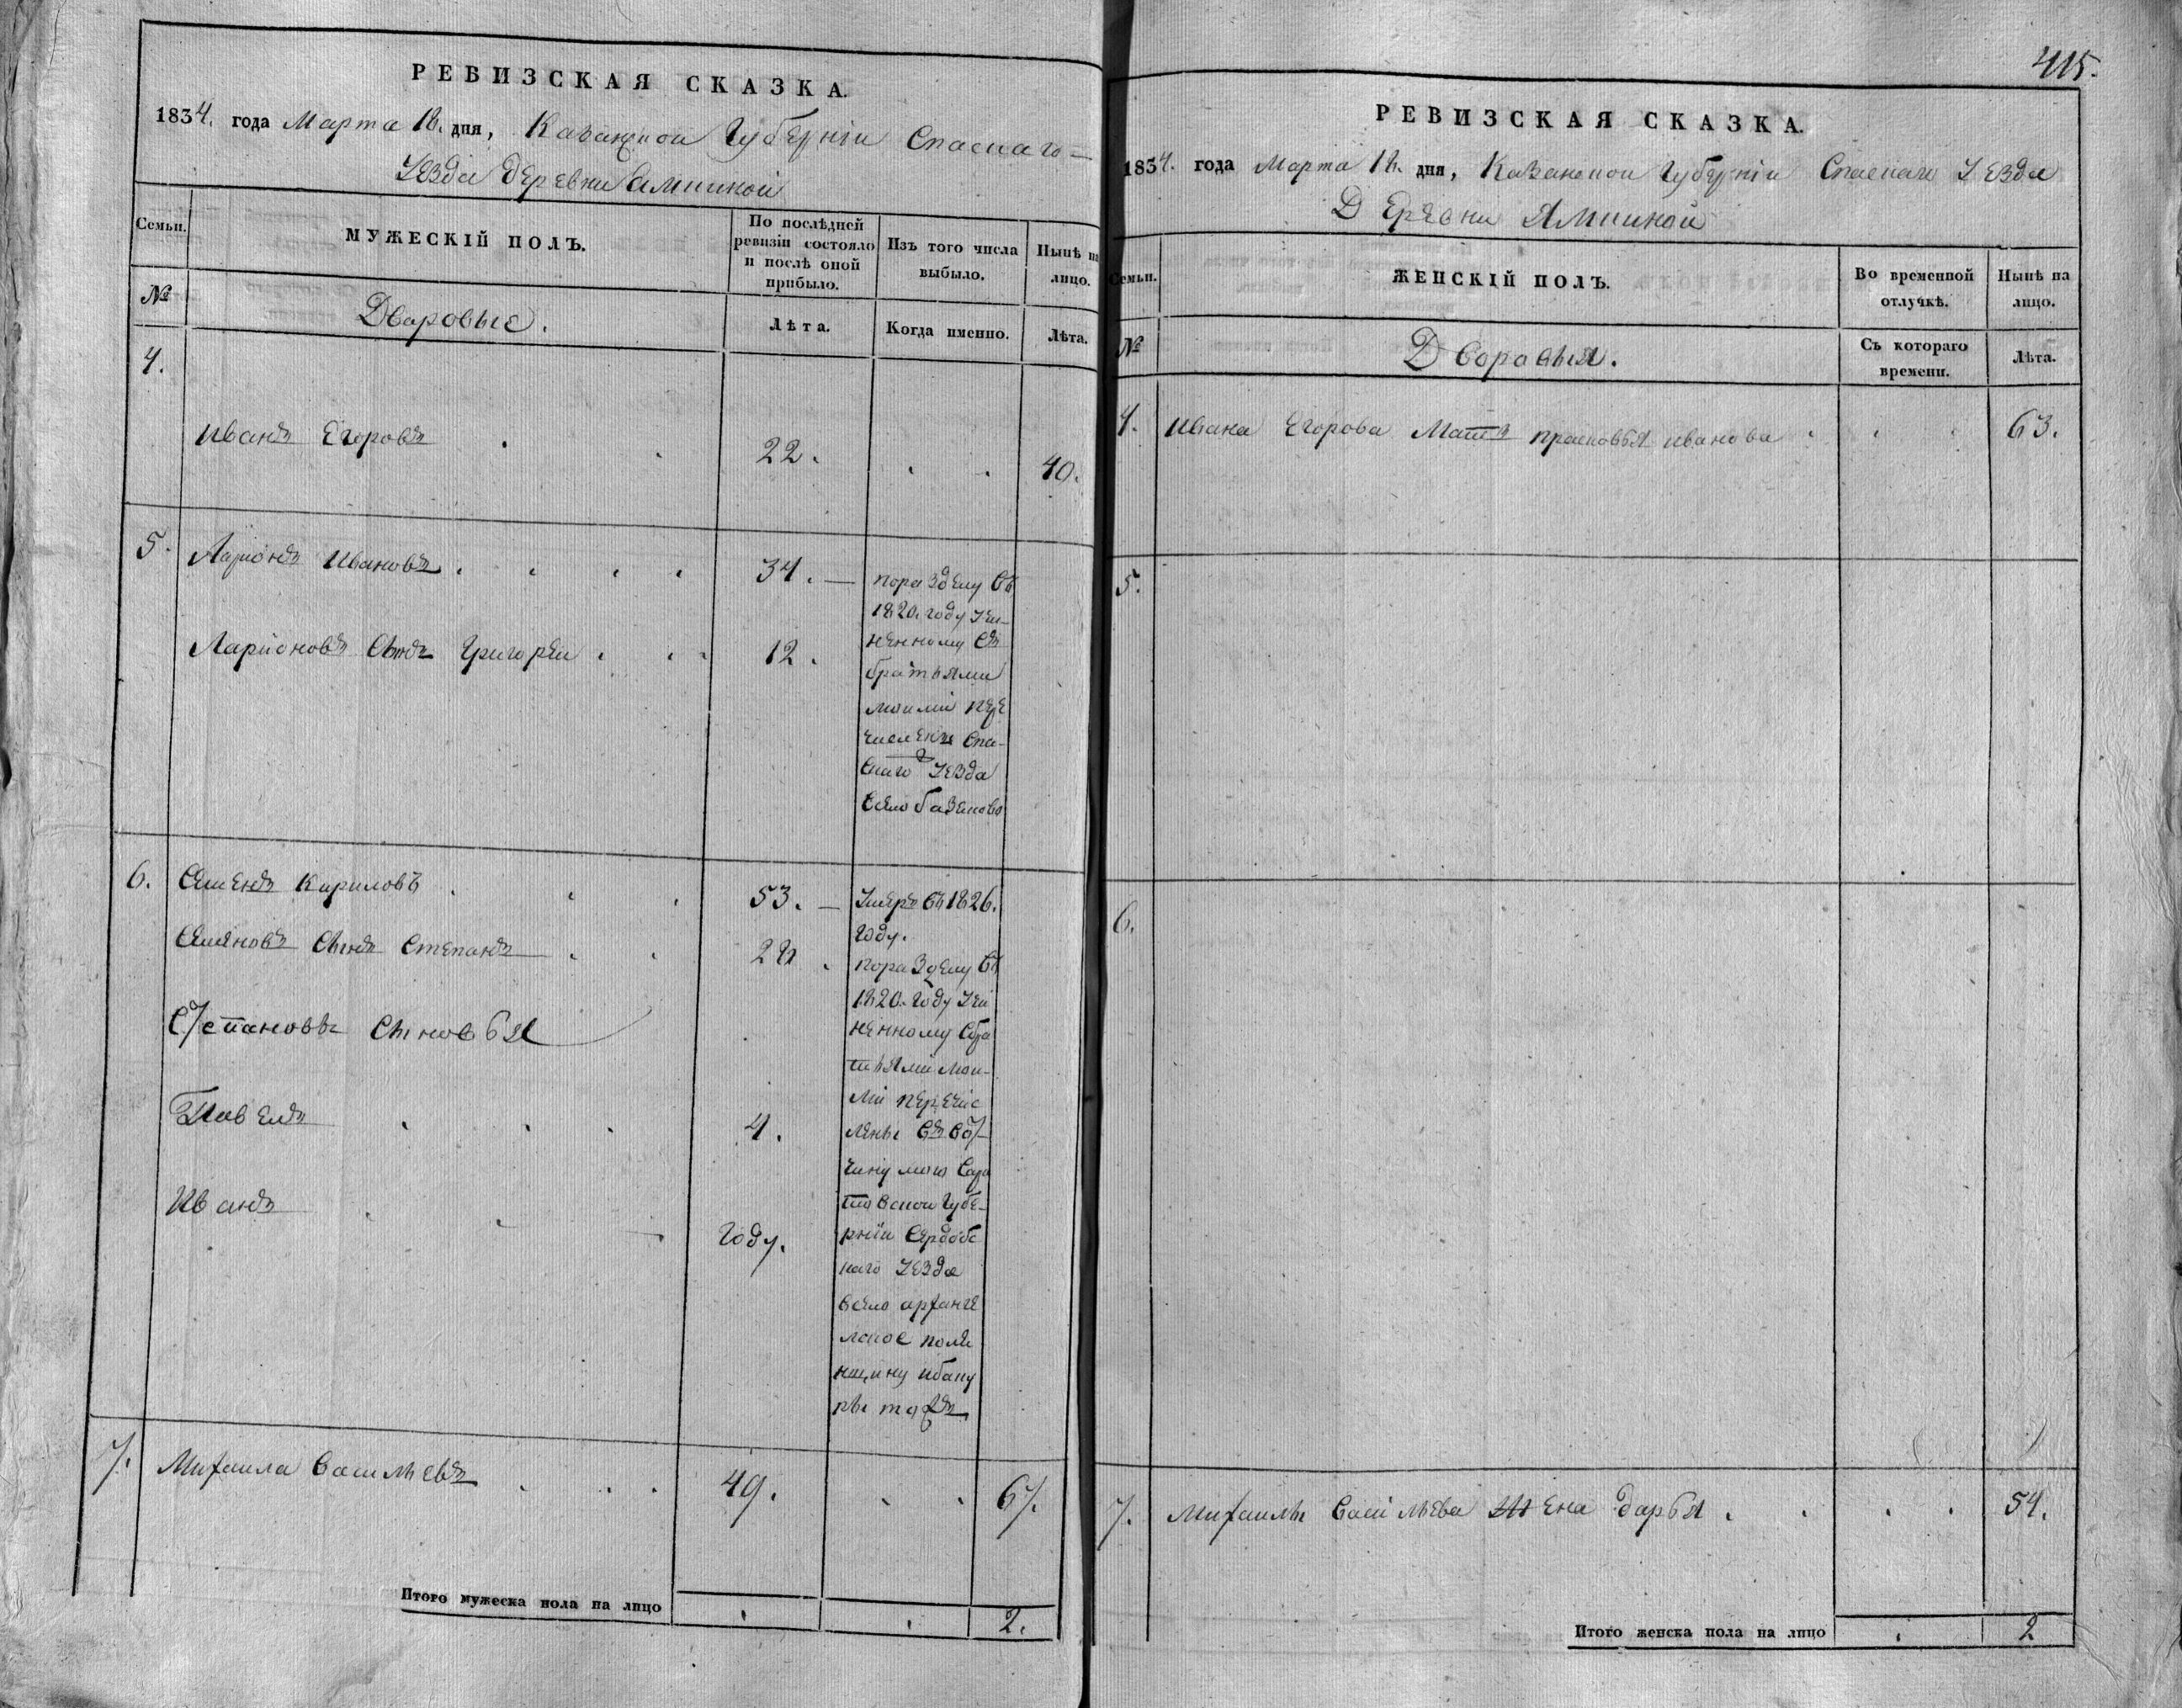 РЕВИЗСКАЯ СКАЗКА.
1834. года Марта 18. дня, Казанской Губернiи Спаскаго
Уезда деревни Ямкиной
Семьи. МУЖЕСКIЙ ПОЛЪ. По послѣдней ревизiи состояло и послѣ оной прибыло. Изъ того числа выбыло. Нынѣ на лицо.
№ Дваровые. Лѣта. Когда именно. Лѣта.
4.
Иванъ Егоровъ 22. 40.
5. Ларiонъ Ивановъ 34. поразделу въ
1820. году учи-
Ларионовъ сынъ Григореи 12. ненному съ
братьями
моими пере
числены Спа-
скаго уезда
всело базяково
6. Семенъ Кириловъ 53. Умеръ въ 1826.
году.
Семяновъ сынъ Степанъ 28. поразделу въ
1820. году учи
Степановы сыновья ненному сбра
тьями мои-
ми перечис
Павелъ 4. лены въ вот-
чину мою Сара
Иванъ товской губе-
году. рнiи Сердобс
каго уезда
всело арханге
лское поле
нщину
тожъ
7. Михаила Васильевъ 49. 67.
Итого мужеска пола на лицо 2.
415.
РЕВИЗСКАЯ СКАЗКА.
1834. года Марта 18. дня, Казанской Губернiи Спаскаго Уезда
Деревни Ямкиной
Семьи. ЖЕНСКIЙ ПОЛЪ. Во временной отлучкѣ. Нынѣ на лицо.
№ Дворовыя. Съ котораго времени. Лѣта.
4. Ивана Егорова Мать прасковья иванова 63.
5.
6.
7. Михаилы Васильева жена дарья 54.
Итого женска пола на лицо 2